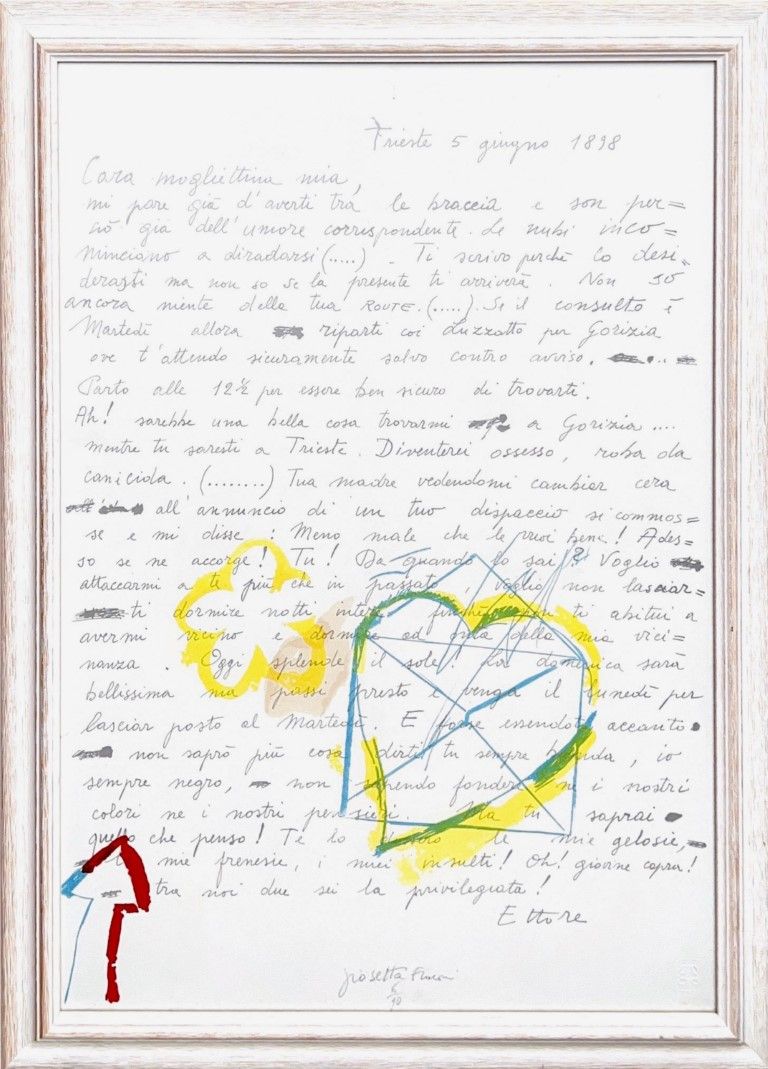 Trieste 5 giugno 1898
Cara mogliettina mia,
mi pare già d'averti tra le braccia e son per=
ciò già dell'umore corrispondente. Le nubi inco=
minciano a diradarsi (.....). Ti scrivo perchè lo desi=
derasti ma non so se la presente ti arriverà. Non so
ancora niente della tua ROUTE. (.....). Se il consulto è
Martedì allora riparti coi Luzzatto per Gorizia
ove t'attendo sicuramente salvo contro avviso.
Parto alle 12½ per essere ben sicuro di trovarti.
Ah! sarebbe una bella cosa trovarmi a Gorizia ....
mentre tu saresti a Trieste. Diventerei ossesso, roba da
canicida. (........) Tua madre vedendomi cambiar cera
all'annuncio di un tuo dispaccio si commos=
se e mi disse : Meno male che le vuoi bene! Ades=
so se ne accorge! Tu! Da quando lo sai? Voglio
attaccarmi a te più che in passato, voglio non lasciar=
ti dormire notti intere finchè non ti abitui a
avermi vicino e dormire ad onta della mia vici=
nanza. Oggi splende il sole! La domenica sarà
bellissima ma passi presto e venga il lunedì per
lasciar posto al Martedì. E forse essendoti accanto
non saprò più cosa dirti, tu sempre bionda, io
sempre negro, non sapendo fondere ne i nostri
colori ne i nostri pensieri. Ma tu saprai
quello che penso! Te lo le mie gelosie,
mie frenesie, i miei insulti! Oh! giovine capra!
tra noi due sei la privilegiata!
Ettore
giosetta Fioroni
6/90